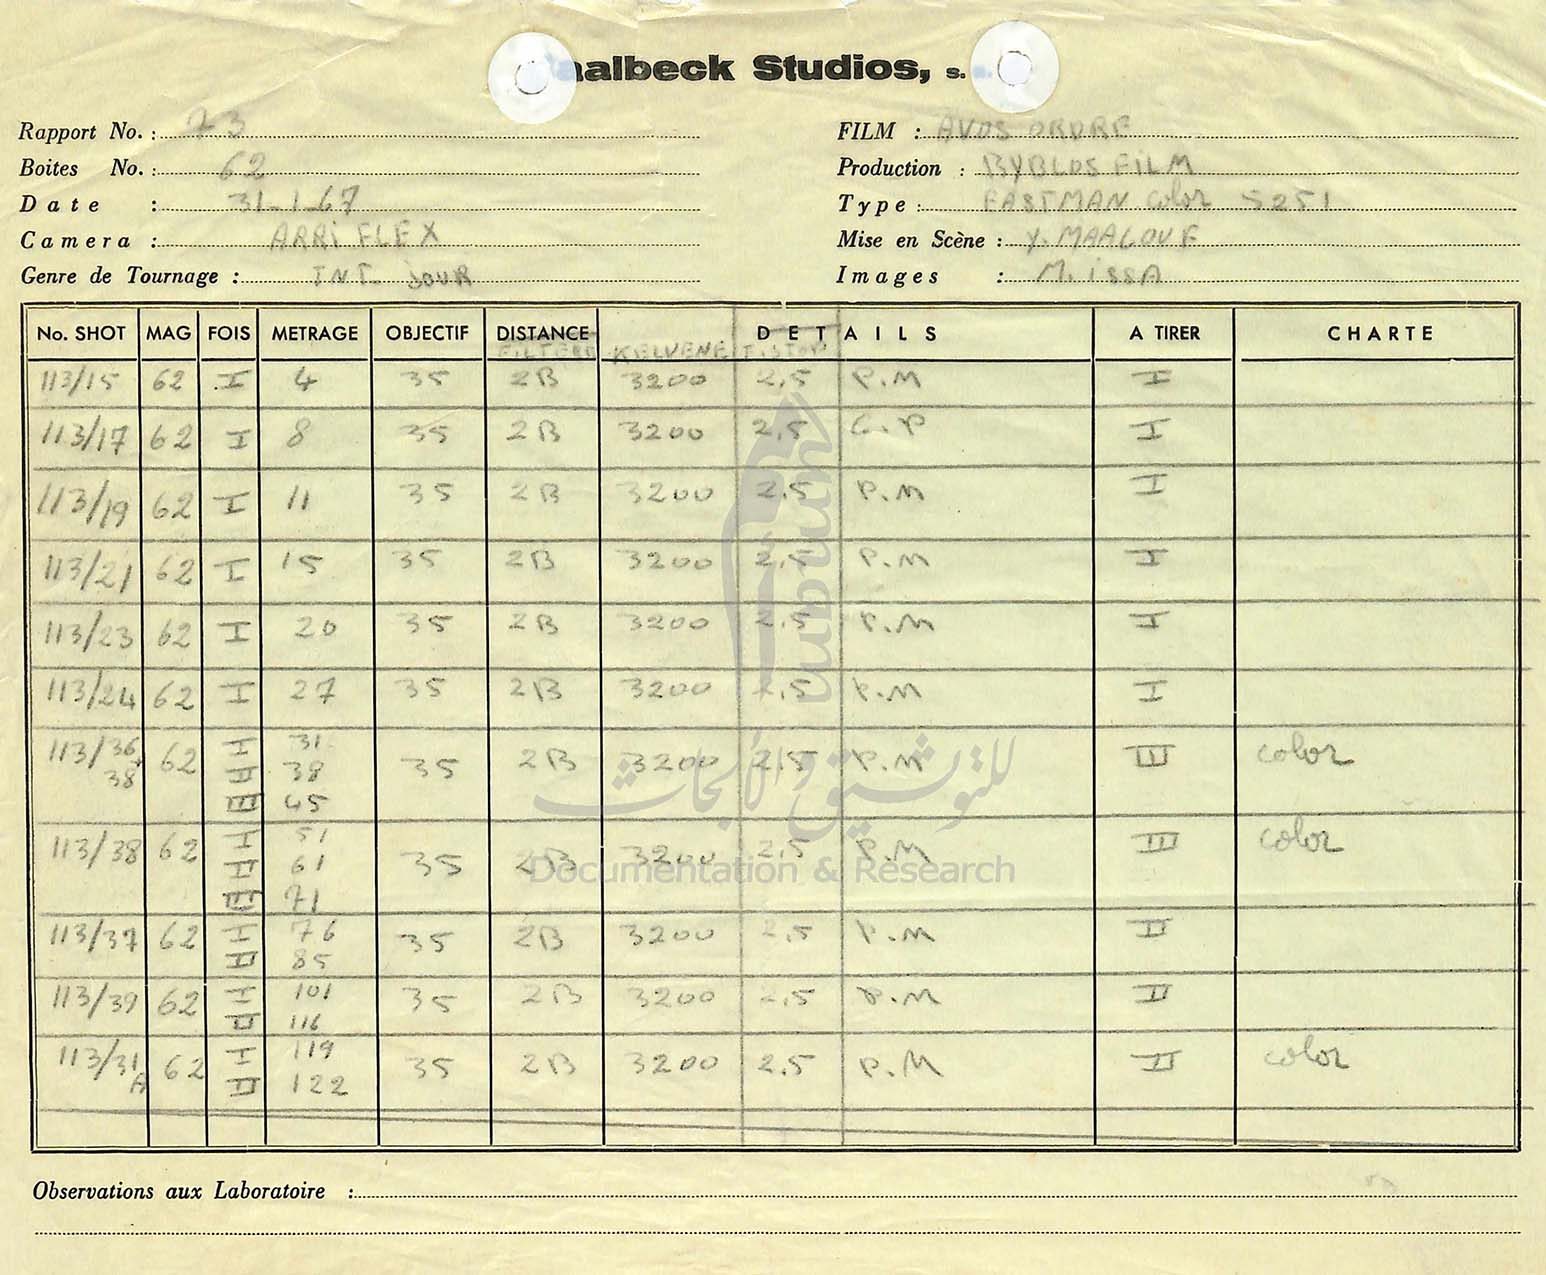 aalbeck Studios, s. a.
Rapport No. : 23
Boites No. : 62
Date : 31-1-67
Camera : ARRI FLEX
Genre de Tournage : INT. JOUR
FILM : AVOS ORDRE
Production : BYBLOS FILM
Type : EASTMAN Color 5251
Mise en Scène : Y. MAALOUF
Images : M. ISSA
No. SHOT MAG FOIS METRAGE OBJECTIF DISTANCE DETAILS A TIRER CHARTE
FILTERE KELVENE F.STOP
113/15 62 I 4 35 2B 3200 2,5 P.M I
113/17 62 I 8 35 2B 3200 2,5 G.P I
113/19 62 I 11 35 2B 3200 2,5 P.M I
113/21 62 I 15 35 2B 3200 2,5 P.M I
113/23 62 I 20 35 2B 3200 2,5 P.M I
113/24 62 I 27 35 2B 3200 2,5 P.M I
113/36 + 38 62 I 31 35 2B 3200 2,5 P.M III color
II 38
III 45
113/38 62 I 51 35 2B 3200 2,5 P.M III color
II 61
III 71
113/37 62 I 76 35 2B 3200 2,5 P.M II
II 85
113/39 62 I 101 35 2B 3200 2,5 P.M II
II 116
113/31 A 62 I 119 35 2B 3200 2,5 P.M II color
II 122
Observations aux Laboratoire :
umam
للتوثيق والأبحاث
Documentation & Research